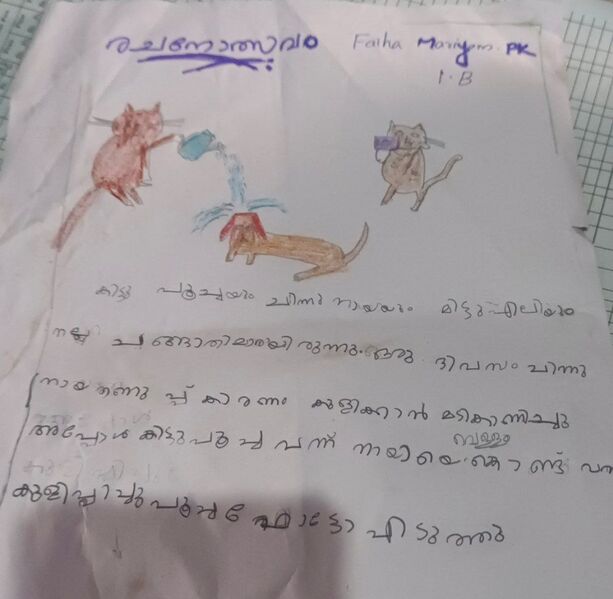 രചനോത്സവം Faiha Mariyam. PK
1. B
കിട്ടു പൂച്ചയും ചിന്നു നായയും മിട്ടു എലിയും
നല്ല ചങ്ങാതിമാരായിരുന്നു. ഒരു ദിവസം ചിന്നു
നായ തണുപ്പ് കാരണം കുളിക്കാൻ മടികാണിച്ചു
അപ്പോൾ കിട്ടു പൂച്ച വന്ന് നായിയെ വെള്ളം കൊണ്ട് വന്ന
കുളിപ്പിച്ചു പൂച്ച ഫോട്ടോ എടുത്തു